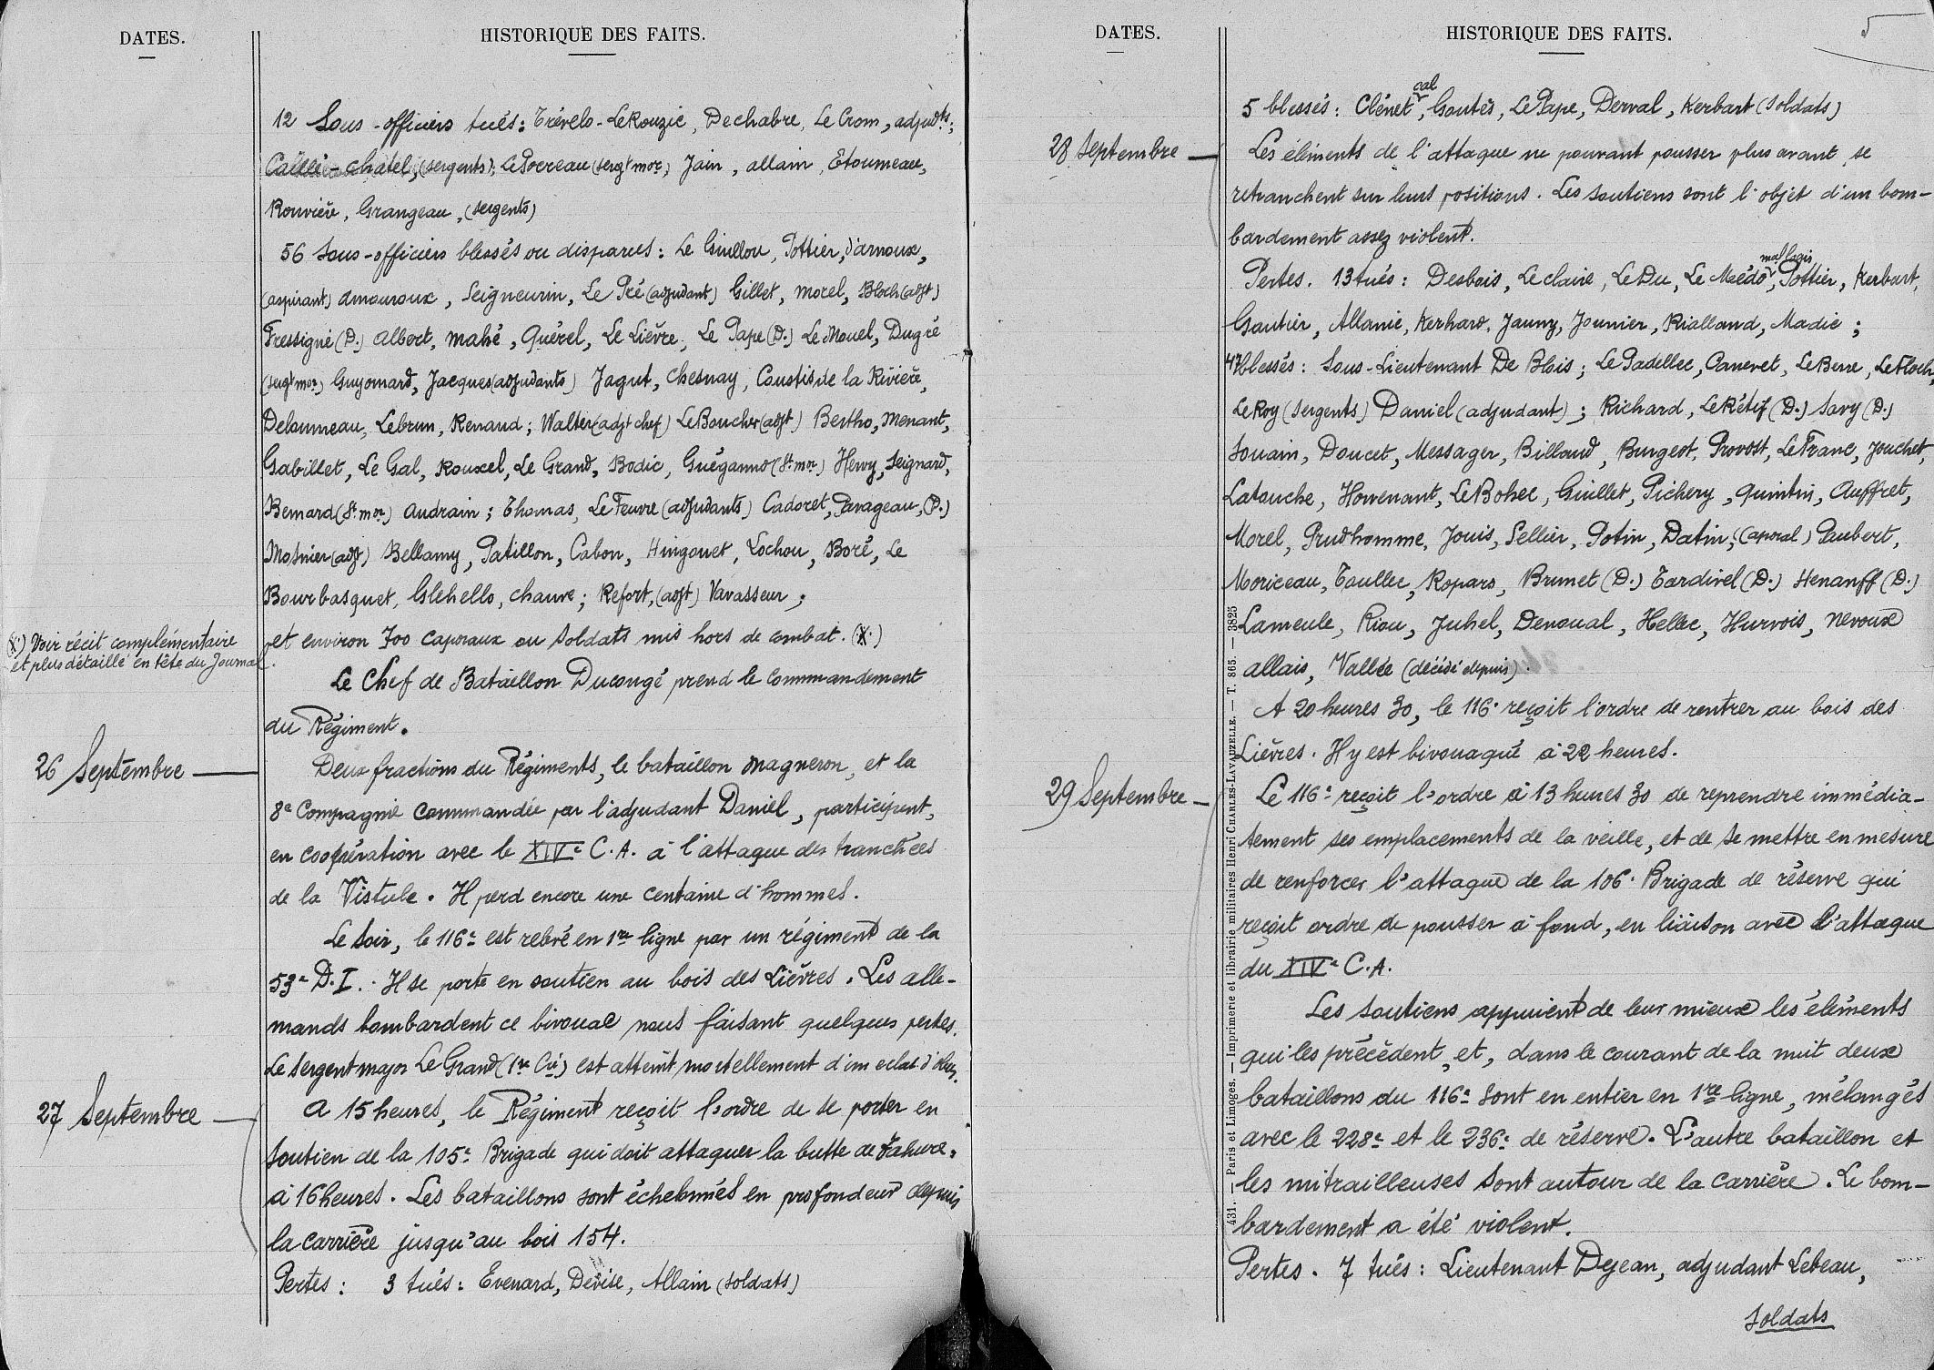 DATES.
HISTORIQUE DES FAITS.
12 Sous-officiers tués: Trévelo-LeRouzic, Dechabre, Le Crom, adjudts;
Caillé-Chatel, (sergents); Le Porreau (sergt mor), Jain, allain, Etourneau,
Rouvière, Grangeau, (sergents)
56 Sous-officiers blessés ou disparus: Le Guillou, Pottier, Darnoux,
(aspirant) amouroux, Seigneurin, Le Pré (adjudant) Gillet, morel, Bloch (adjt)
Fressigné (D.) Albert, mahé, Quérel, Le Lièvre, Le Pape (D.) Le Mouel, Dugré
(sergt mor) Guyomard, Jacques (adjudants) Jagut, Chesnay, Coustis de la Rivière,
Delaunneau, Lebrun, Renaud; Walter (adjt chef) LeBoucher (adjt) Bertho, Menant,
Gabillet, Le Gal, Rouxel, Le Grand, Bodic, Guéganno (St mor) Hervy, Seignard,
Bernard (St mor) Audrain; Thomas, Le Feuvre (adjudants) Cadoret, Pavageau, (D.)
Mosnier (adjt) Bellamy, Patillon, Cabon, Hingouet, Lochou, Boré, Le
Bourbasquet, Glehello, chauve; Refort, (adjt) Vavasseur;
et environ 700 caporaux ou soldats mis hors de combat. (X)
(X) Voir récit complémentaire
et plus détaillé en tête du Journal.
Le Chef de Bataillon Ducongé prend le commandement
du Régiment.
26 Septembre
Deux fractions du Régiments, le bataillon Magneron, et la
8e Compagnie commandée par l'adjudant Daniel, participent,
en coopération avec le XIVe C.A. à l'attaque des tranchées
de la Vistule. Il perd encore une centaine d'hommes.
Le soir, le 116e est relevé en 1re ligne par un régiment de la
53e D.I. Il se porte en soutien au bois des Lièvres. Les alle-
mands bombardent ce bivouac nous faisant quelques pertes.
Le sergent major Le Grand (1re Cie) est atteint mortellement d'un eclat d'obus.
27 Septembre
A 15 heures, le Régiment reçoit l'ordre de se porter en
soutien de la 105e Brigade qui doit attaquer la butte de Tahure.
à 16 heures. Les bataillons sont échelonnés en profondeur depuis
la carrière jusqu'au bois 154.
Pertes: 3 tués: Evenard, Devise, Allain (soldats)
DATES.
HISTORIQUE DES FAITS.
5
5 blessés: Clénet cal, Gautès, Le Pape, Derval, Kerbart (soldats)
28 Septembre
Les éléments de l'attaque ne pouvant pousser plus avant, se
retranchent sur leurs positions. Les soutiens sont l'objet d'un bom-
bardement assez violent.
Pertes. 13 tués: Desbois, Leclaire, LeDu, Le Maédo, Pottier, Kerbart,
Gautier, Allanic, Kerhard, Jauny, Jounier, Rialland, Madic;
47 blessés: Sous-Lieutenant De Blois; Le Padellec, Canevet, LeBerre, LeFloch,
LeRoy (sergents) Daniel (adjudant); Richard, LeRétif (D.) Savy (D.)
Souain, Doucet, Messager, Billaud, Burgeot, Provost, LeFranc, Jouchet,
Latouche, Houenant, LeBohec, Guillet, Pichery, Quintin, Auffret,
Morel, Prudhomme, Jouis, Sellier, Potin, Datin, (caporal) Paubert,
Moriceau, Toullec, Ropars, Brunet (D.) Tardivel (D.) Henanff (D.)
Lameule, Riou, Juhel, Denoual, Hellec, Hurvois, Nevoux
allais, Vallée (décédé depuis).
A 20 heures 30, le 116e reçoit l'ordre de rentrer au bois des
Lièvres. Il y est bivouaqué à 22 heures.
29 Septembre
Le 116e reçoit l'ordre à 13 heures 30 de reprendre immédia-
tement ses emplacements de la veille, et de se mettre en mesure
de renforcer l'attaque de la 106e Brigade de réserve qui
reçoit ordre de pousser à fond, en liaison avec l'attaque
du XIVe C.A.
Les soutiens appuient de leur mieux les éléments
qui les précèdent, et, dans le courant de la nuit deux
bataillons du 116e sont en entier en 1re ligne, mélangés
avec le 228e et le 236e de réserve. L'autre bataillon et
les mitrailleuses sont autour de la carrière. Le bom-
bardement a été violent.
Pertes. 7 tués: Lieutenant Dejean, adjudant Lebeau,
soldats
431. — Paris et Limoges. — Imprimerie et librairie militaires Henri CHARLES-LAVAUZELLE. — T. 865. — 3825